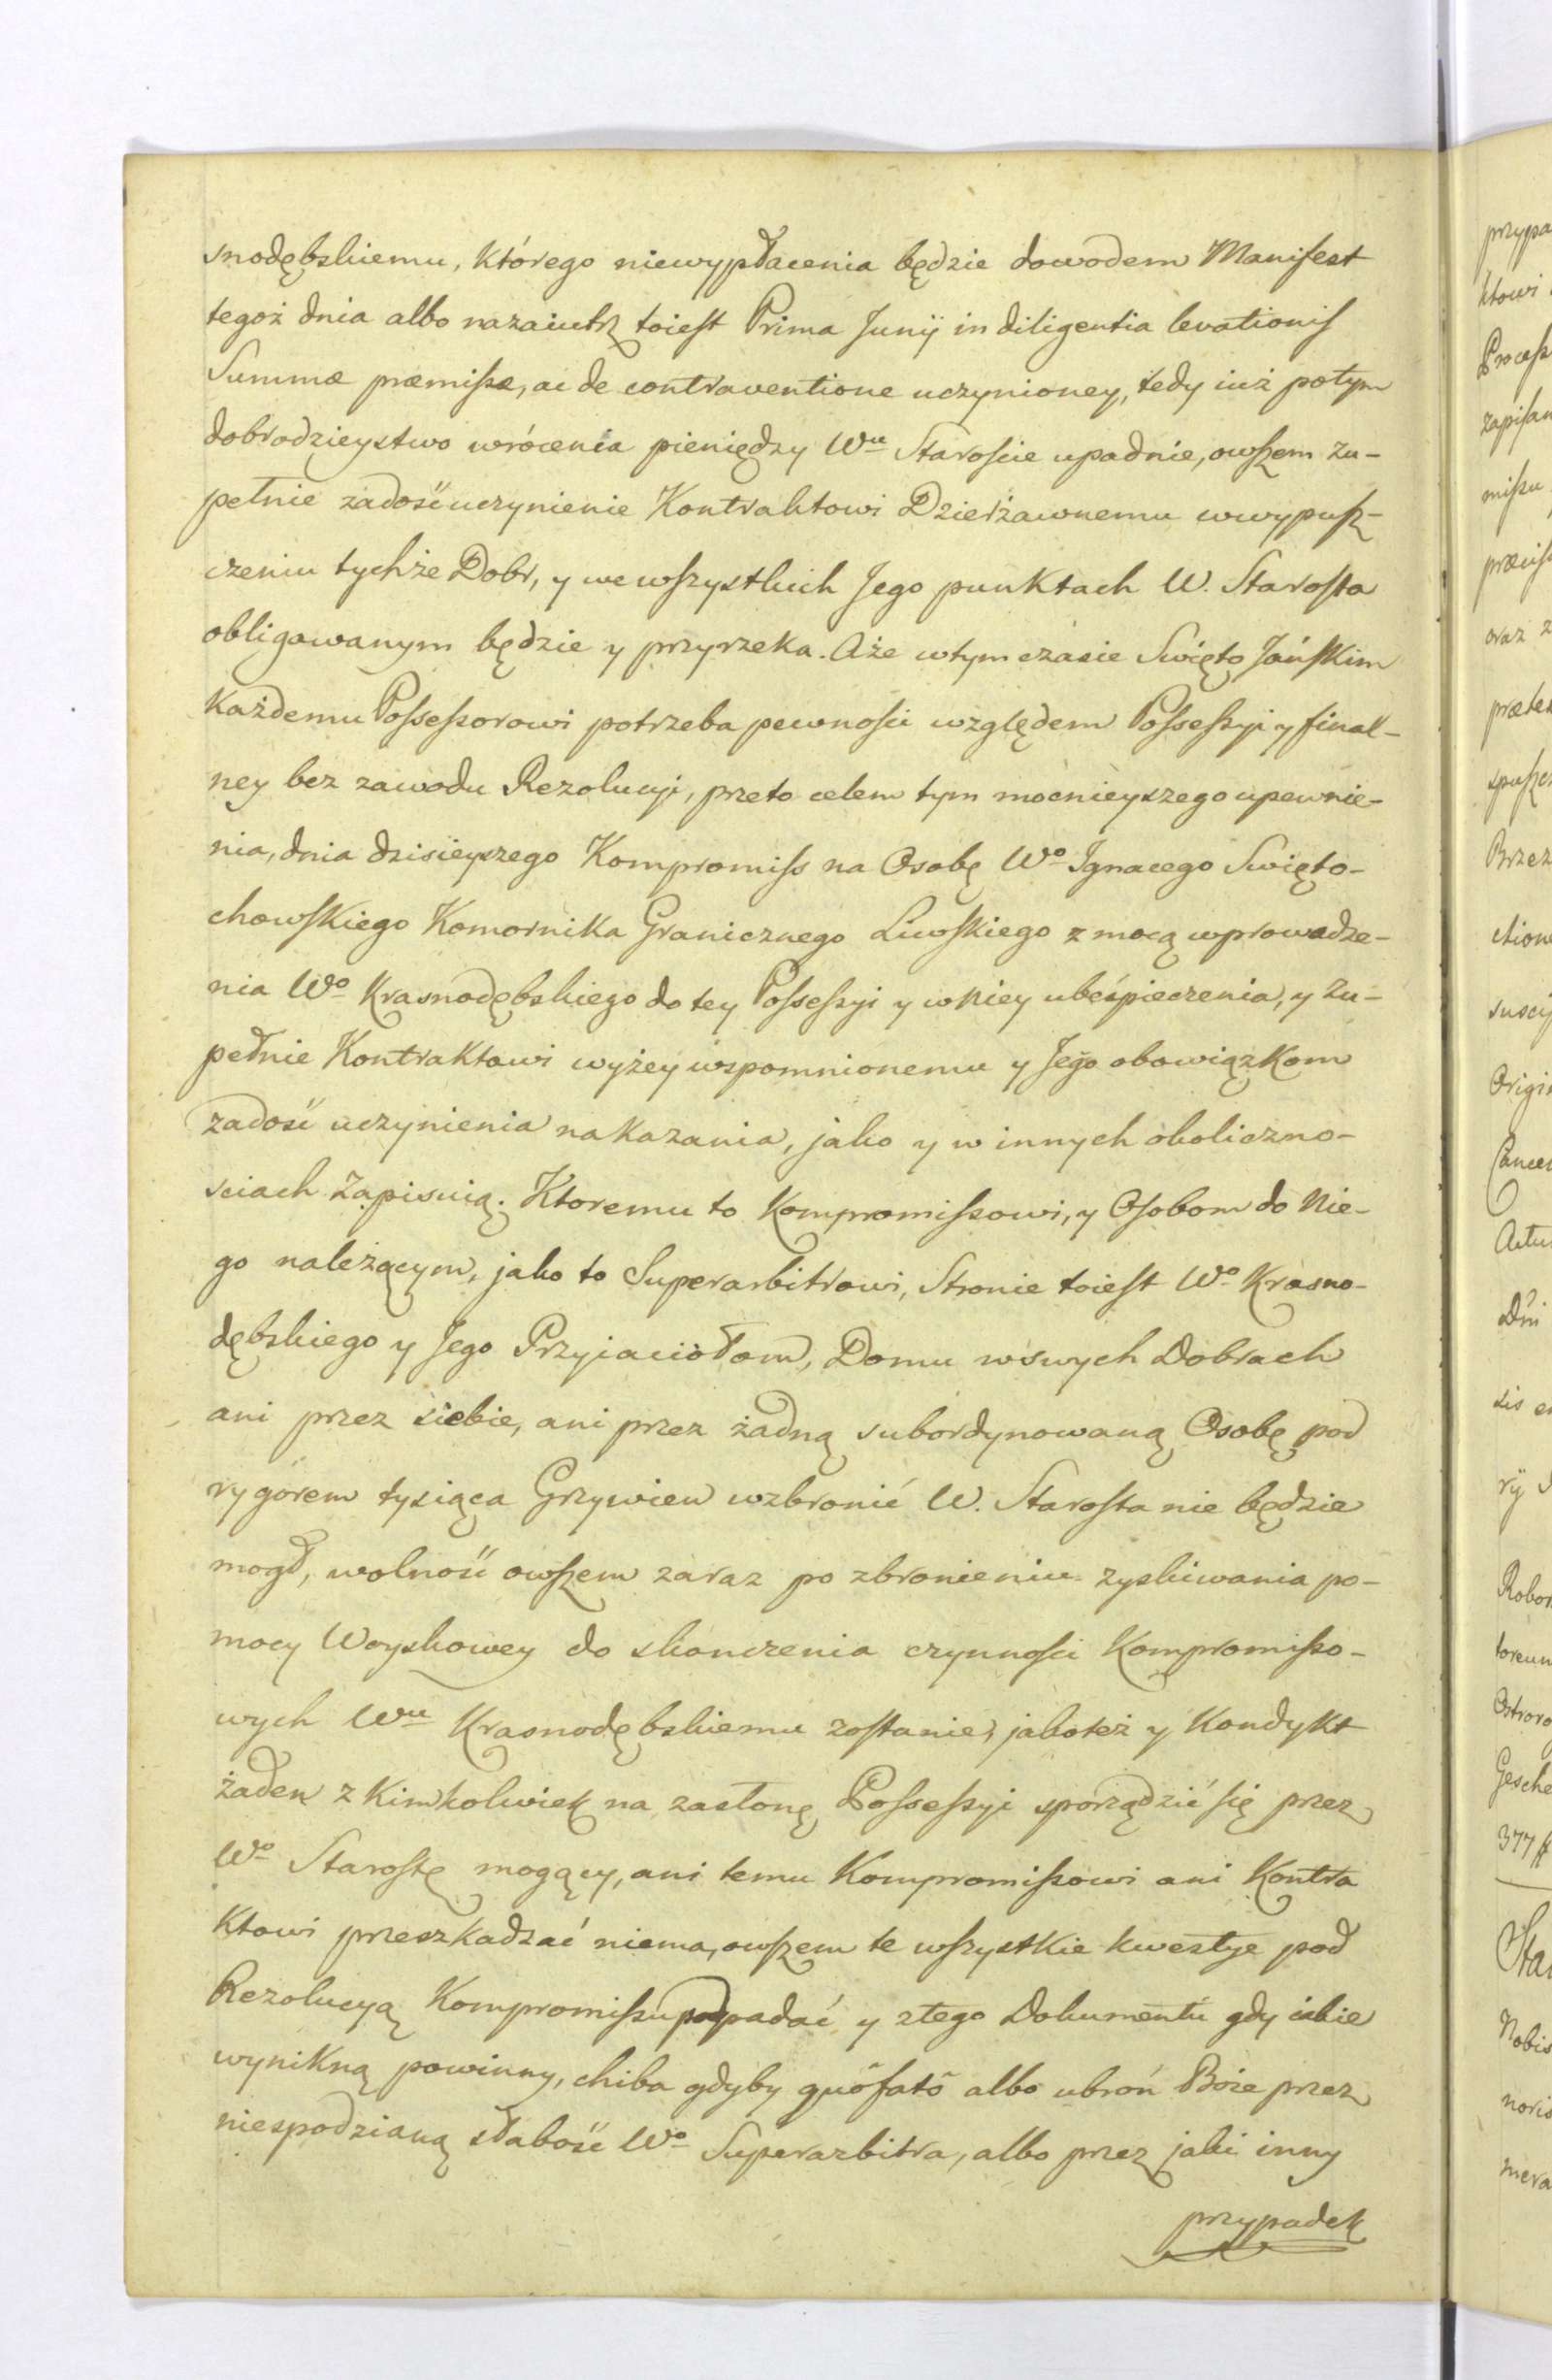 snodębskiemu, którego niewypłacenia będzie dowodem Manifest
tegoż dnia albo nazaiutrz toiest Prima Junÿ in diligentia levationis
Summæ præmissæ, ac de contraventione uczynioney, tedy iuż potym
dobrodzieystwo wrócenia pieniędzy Wu Staroscie upadnie, owszem zu-
pełnie zadosć uczynienie Kontraktowi Dzierżawnemu wwypusz-
czeniu tychże Dobr, y we wszystkich Jego punktach W. Starosta
obligowanym będzie y przyrzeka. Aże wtym czasie Swięto Jańskim
Każdemu Possessorowi potrzeba pewnosci względem Possessyi y final-
ney bez zawodu Rezolucyi, przeto celem tym mocnieyszego upewnie-
nia, dnia dzisieyszego Kompromiss na Osobę Wo Ignacego Swięto-
chowskiego Komornika Granicznego Liwskiego z mocą wprowadze-
nia Wo Krasnodębskiego do tey Possessyi y w niey ubespieczenia, y Zu-
pełnie Kontraktowi wyżey wspomnionemu y Jego obowiązkom
zadosć uczynienia nakazania, jako y w innych okoliczno-
sciach Zapisuią. Ktoremu to Kompromissowi, y Osobom do Nie-
go należącym, jako to Superarbitrowi, Stronie toiest Wo Krasno-
dębskiego y Jego Przyjaciołom, Domu wswych Dobrach
ani przez siebie, ani przez żadną subordynowaną Osobę pod
rygorem tysiąca Grzywien wzbronić W. Starosta nie będzie
mogł, wolność owszem zaraz po zbronieniu zyskiwania po-
mocy Woyskowey do skonczenia czynnosci Kompromisso-
wych Wu Krasnodębskiemu zostanie, jakoteż y Kondykt
żaden z Kimkolwiek na zasłonę Possessyi sporządzić się przez
Wo Starostę mogący, ani temu Kompromissowi ani Kontra
Ktowi przeszkadzać niema, owszem te wszystkie kwestye pod
Rezolucyą Kompromissu podpadać y ztego Dokumentu gdy iakie
wynikną powinny, chiba gdyby quōfatō albo ubroń Boże przez
niespodzianą słabość Wo Superarbitra, albo przez jaki inny
przypadek